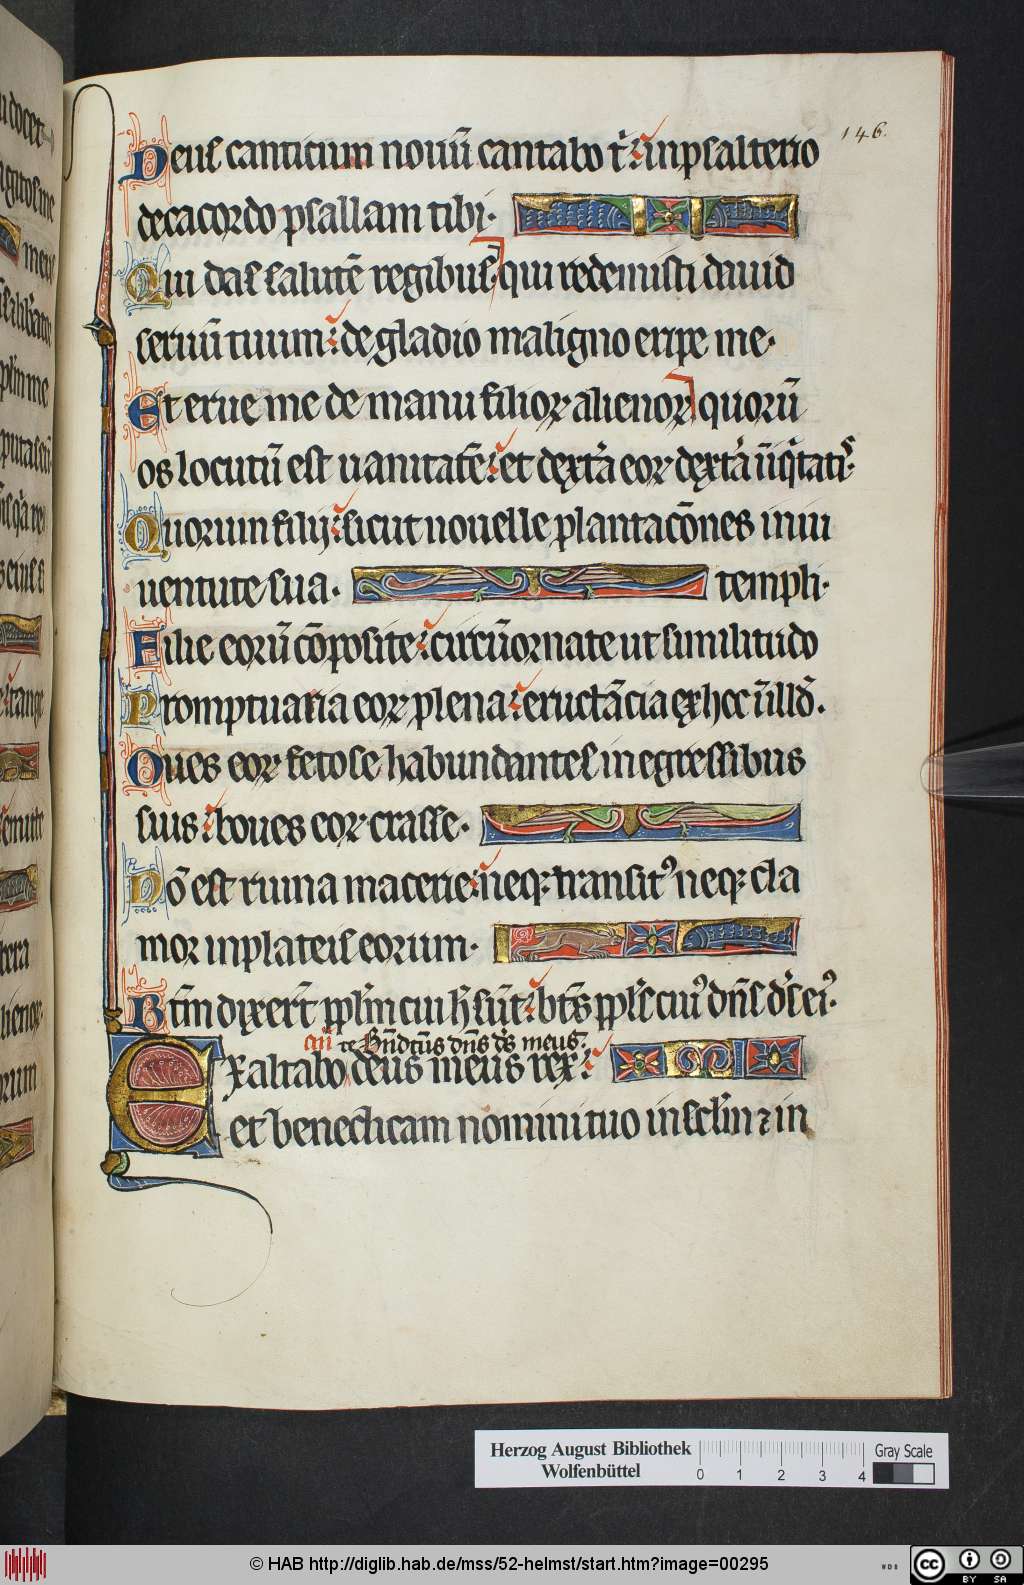 146.
Deus canticum nouū cantabo t̾: in psalterio
decacordo psallam tibi·
Qui das salutē regibus· qui redemisti dauid
seruū tuum: de gladio maligno eripe me·
Et erue me de manu filioꝝ alienoꝝ quorū
os locutū est uanitatē: et dext̾a eoꝝ dext̾a īiq̾tatis·
Quorum filij: sicut nouelle plantacōnes in iu
uentute sua· templi·
Filie eorū cōposite: circūornate ut similitudo
Promptuaria eoꝝ plena: eructācia ex hoc ī illd̄.
Oues eoꝝ fetose habundantes in egressibus
suis: boues eoꝝ crasse·
Nō est ruina macerie: neqꝫ transitꝰ neqꝫ cla
mor in plateis eorum·
Btm̄ dixer̄t ppl̄m cui h̄ sūt: bt̄s ppl̄s cuiꝰ dn̄s d̄s eiꝰ·
te bn̄dcūs dn̄s d̄s meus·
Exaltabo deus meus rex:
et benedicam nomini tuo in sclm̄ ⁊ in
u docet
meus
pl̄m me
tange
emitte
Herzog August Bibliothek
Wolfenbüttel
0 1 2 3 4
Gray Scale
© HAB http://diglib.hab.de/mss/52-helmst/start.htm?image=00295
WDB
cc BY SA